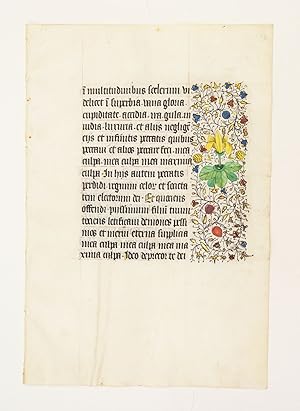 ī multitudinibus scelerum vi
delicet ī superbia. vana gloria.
cupiditate. accidia. ira. gula. in
uidia. luxuria. et alijs neglige
cijs et infinitis peccatis quibus
peccaui et alios peccare feci. mea
culpa. mea culpa mea maxima
culpa. In hijs autem peccatis
perdidi regnum celoꝝ et sancta
tem electorum dei. Et
offendi piissimum filiū tuum
tociens letificaui demones pessi
mos et merui eterna supplicia
mea culpa mea culpa mea ma
xima culpa. Ideo deprecor te dei